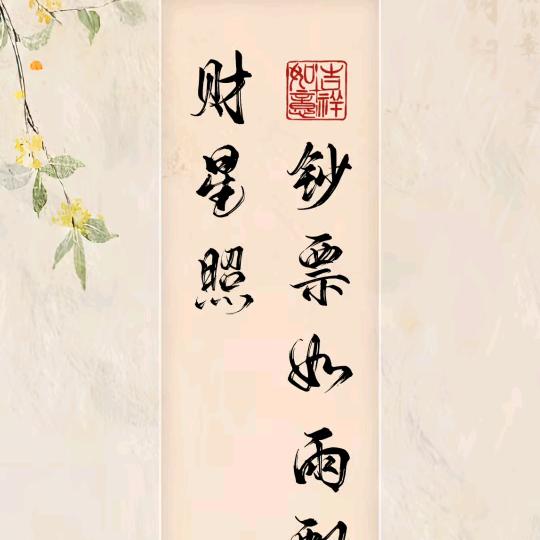 吉祥如意
钞票如雨
财星照